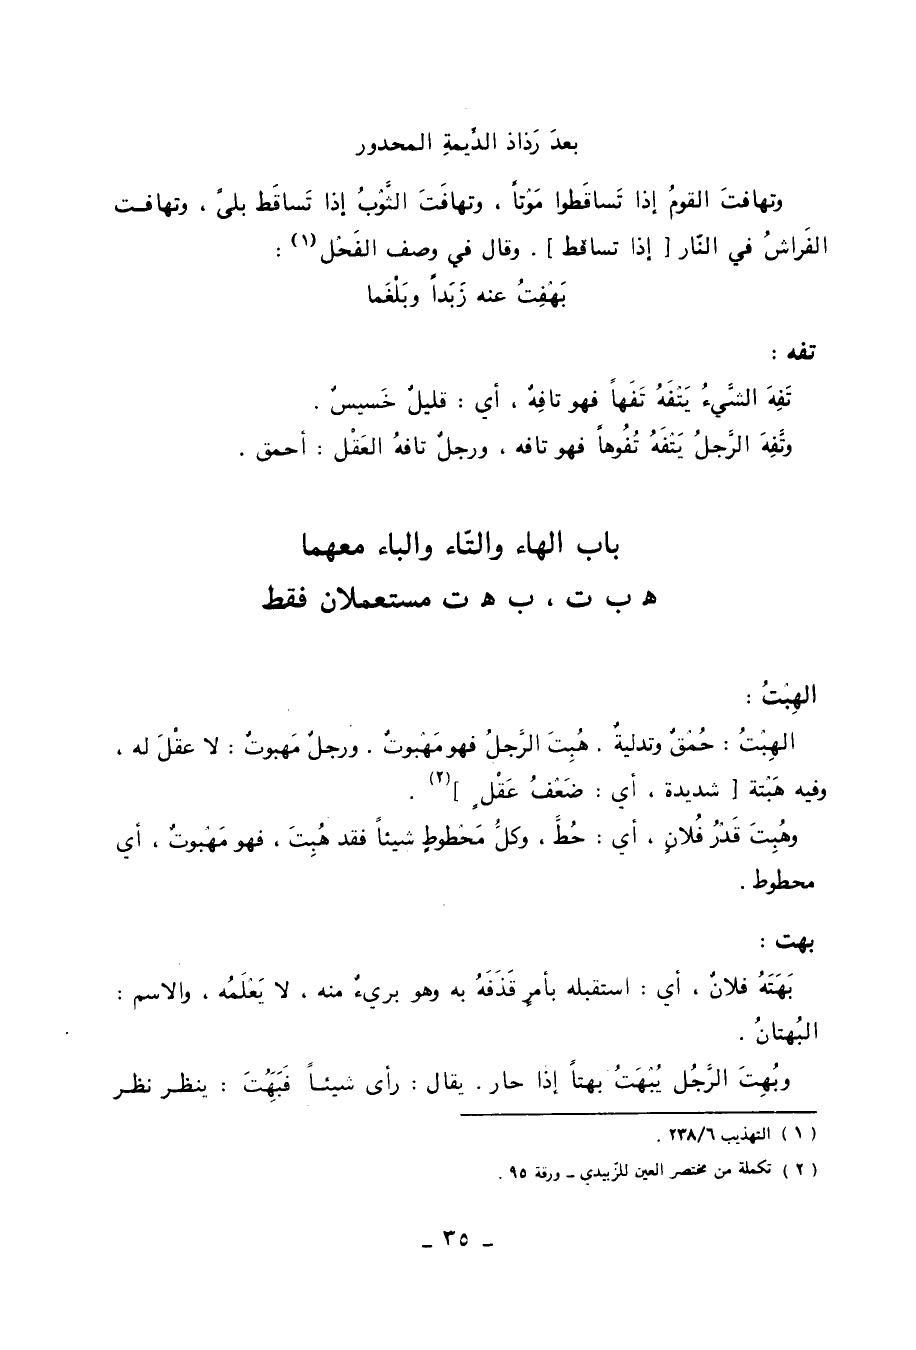 بعدَ رَذاذ الدِّيمةِ المحدور
وتهافتَ القومُ إذا تَساقَطوا مَوْتاً ، وتهافَتَ الثَّوْبُ إذا تَساقَط بلىً ، وتهافت
الفَراشُ في النّار [ إذا تساقط ] . وقال في وصف الفَحْل(١) :
يَهْفِتُ عنه زَبَداً وبَلْغَما
تفه :
تَفِهَ الشَّيءُ يَتْفَهُ تَفَهاً فهو تافِهٌ ، أي : قليلٌ خَسيسٌ .
وتَفِهَ الرَّجلُ يَتْفَهُ تُفُوهاً فهو تافه ، ورجلٌ تافهُ العَقْل : أحمق .
باب الهاء والتّاء والباء معهما
ه ب ت ، ب ه ت مستعملان فقط
الهِبْتُ :
الهِبْتُ : حُمْقٌ وتدليةٌ . هُبِتَ الرَّجلُ فهو مَهْبوتٌ . ورجلٌ مَهبوتٌ : لا عقْلَ له ،
وفيه هَبْتة [ شديدة ، أي : ضَعْفُ عَقْلٍ ](٢) .
وهُبِتَ قَدْرُ فُلانٍ ، أي : حُطَّ ، وكلُّ مَحْطوطٍ شيئاً فقد هُبِتَ ، فهو مَهْبوتٌ ، أي
محطوط .
بهت :
بَهَتَهُ فلانٌ ، أي : استقبله بأمرٍ قَذَفَهُ به وهو بريءٌ منه ، لا يَعْلَمُه ، والاسم :
البُهتانُ .
وبُهِتَ الرَّجُل يُبْهَتُ بهتاً إذا حار . يقال : رأى شيئاً فَبُهِتَ : ينظر نظر
( ١ ) التهذيب ٢٣٨/٦ .
( ٢ ) تكملة من مختصر العين للزّبيدي ـ ورقة ٩٥ .
ـ ٣٥ ـ